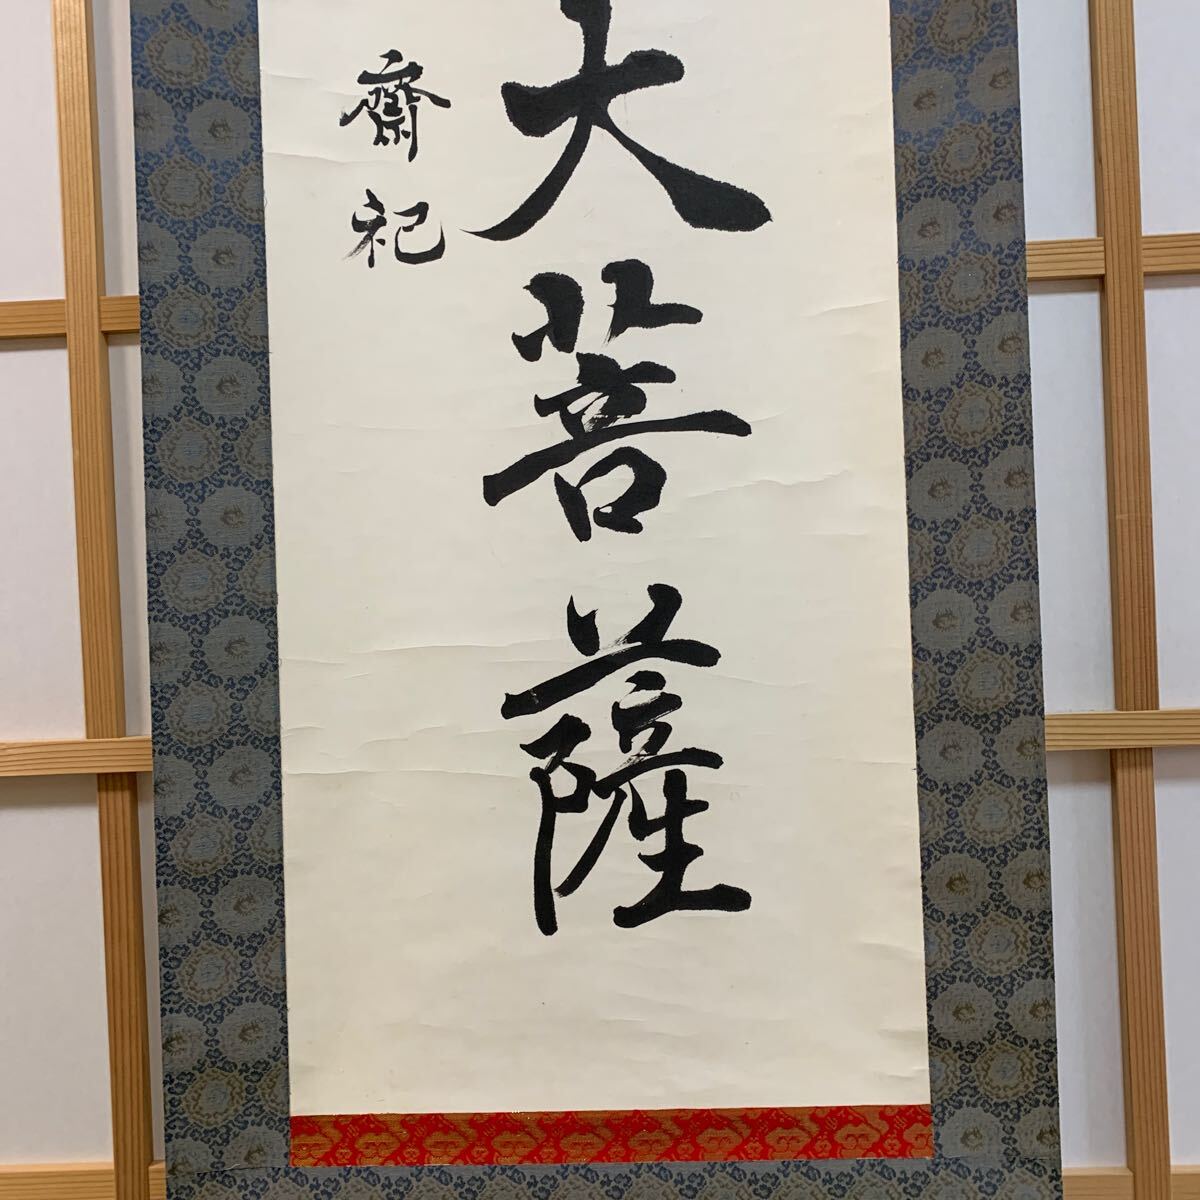 大菩薩
齋祀